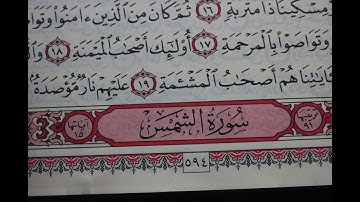 مِسْكِينًا ذَا مَتْرَبَةٍ ١٦ ثُمَّ كَانَ مِنَ الَّذِينَ ءَامَنُوا۟ وَتَوَا
وَتَوَاصَوْا۟ بِالْمَرْحَمَةِ ١٧ أُو۟لَٰٓئِكَ أَصْحَٰبُ الْمَيْمَنَةِ ١٨ وَال
بِـَٔايَٰتِنَا هُمْ أَصْحَٰبُ الْمَشْـَٔمَةِ ١٩ عَلَيْهِمْ نَارٌ مُّؤْصَدَةٌ
ترتيبها ٩١ سُورَةُ الشَّمْسِ آياتها ١٥
٥٩٤